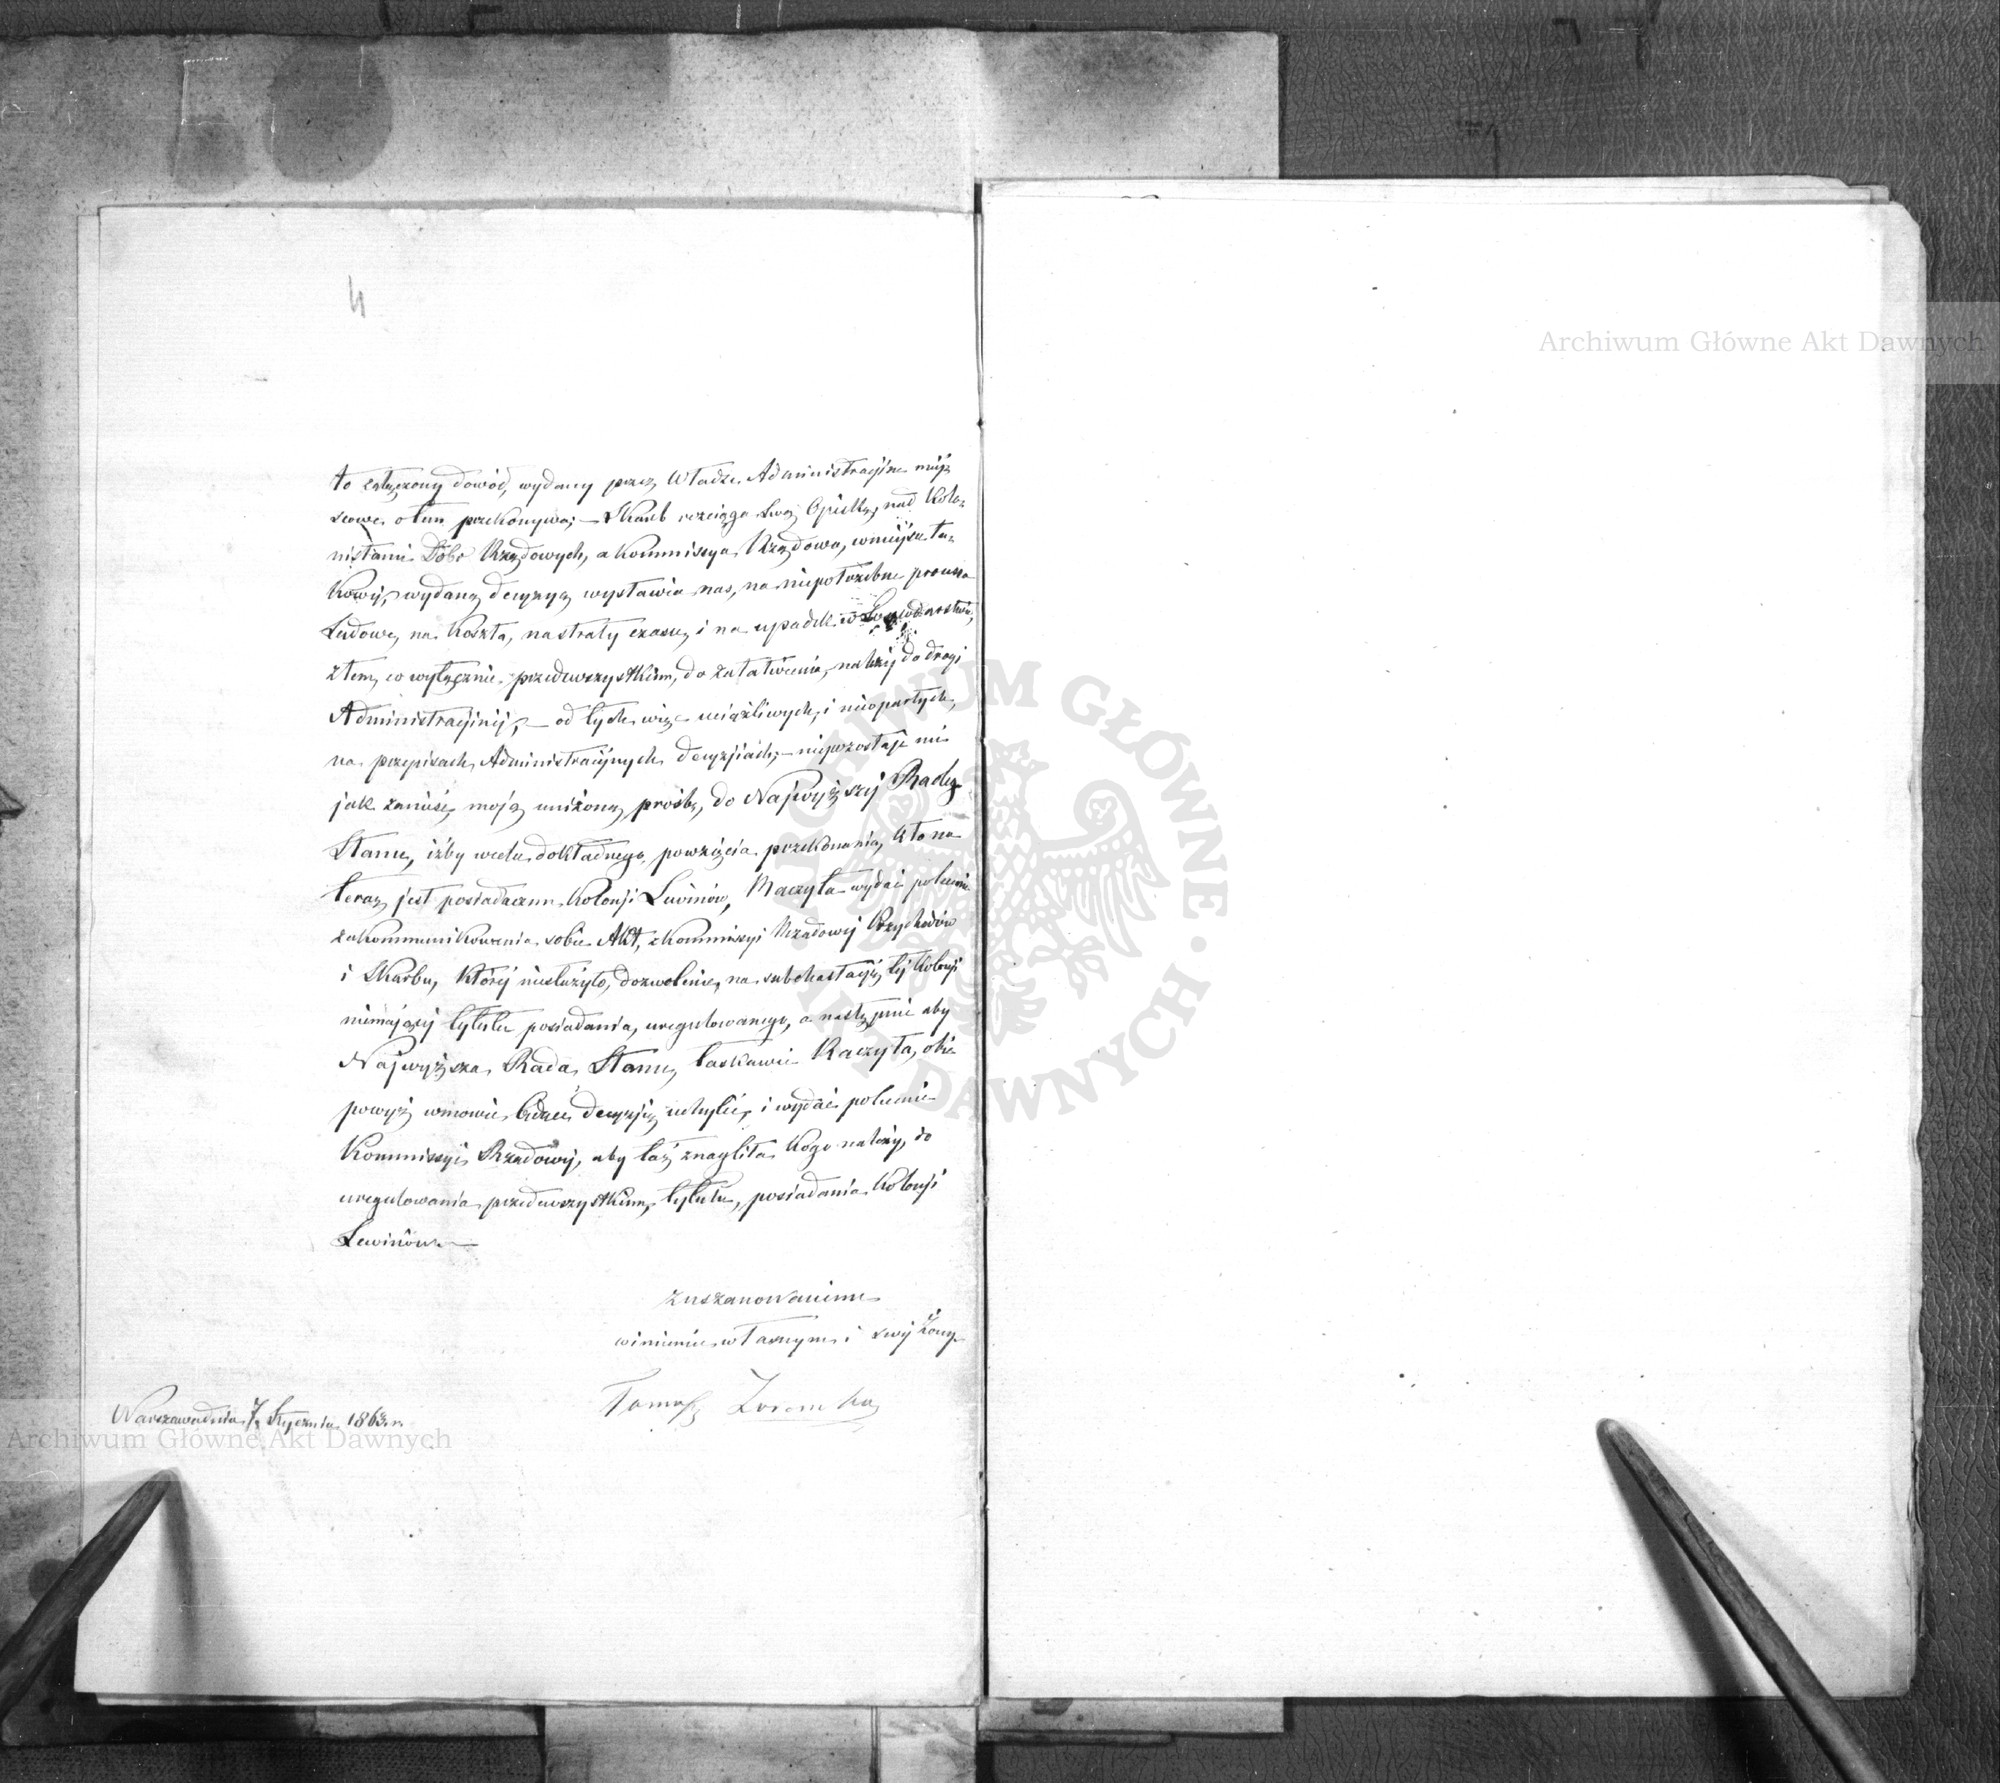 4
to załączony dowód, wydany przez Władze Administracyjne miej
scowe o tem przekonywa; — Skarb rozciąga swą Opiekę, nad Kolo-
nistami Dóbr Rządowych, a Kommissya Rządowa, w miejsce ta-
kowej, wydaną decyzyą wystawia nas, na niepotrzebne processa
Sądowe, na koszta, na straty czasu, i na upadek w Gospodarstwie,
z tem, co wyłącznie, przedewszystkiem, do załatwienia, należy do drogi
Administracyjnej, — od tych więc uciążliwych, i nieopartych,
na przepisach, Administracyjnych decyzjiach, — niepozostaje mi
jak zanieść, moją uniżoną, prośbę, do Najwyższej Rady
Stanu, iżby w celu dokładnego, powzięcia przekonania, kto na
teraz jest posiadaczem Kolonji Lewinów, Raczyła wydać polecenie
zakommunikowania sobie Akt, z Kommissyi Rządowej Przychodów
i Skarbu, której niesłużyło, dozwolenie, na subhastacyą, tej Kolonji
niemającej tytułu posiadania, uregulowanego, a następnie aby
Najwyższa Rada Stanu, łaskawie Raczyła, obie
powyż wmowie będące decyzje uchylić, i wydać polecenie
Kommissyi Rządowej, aby taż znagliła kogo należy, do
uregulowania przedewszystkiem, tytułu, posiadania Kolonji
Lewinów. —
z uszanowaniem
w imieniu własnym i swej Żony
Tomasz Zaremba
Warszawa dnia 7 Stycznia 1863 r.
Archiwum Główne Akt Dawnych
Archiwum Główne Akt Dawnych
ARCHIWUM GŁÓWNE · AKT DAWNYCH ·